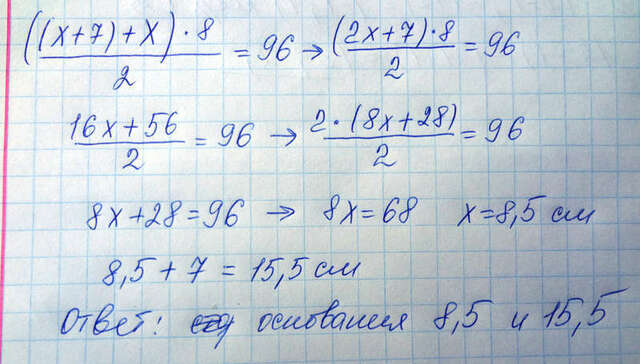 ((x+7)+x)·8/2 = 96 → (2x+7)·8/2 = 96
16x+56/2 = 96 → 2·(8x+28)/2 = 96
8x+28=96 → 8x=68 x=8,5 см
8,5+7 = 15,5 см
Ответ: основания 8,5 и 15,5